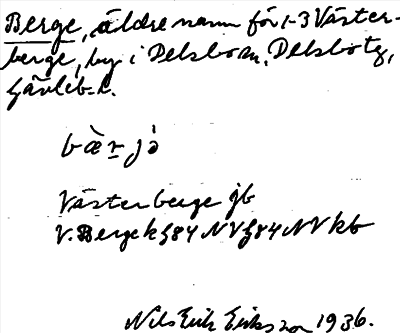 Berge, äldre namn för 1-3 Väster-
berge, by i Delsbo sn, Delsbo tg,
Gävleb. l.
bæ̀r jə̀
Västerberge jb
V. Berge kG84NV, G84NV kb
Nils Erik Eriksson 1936.